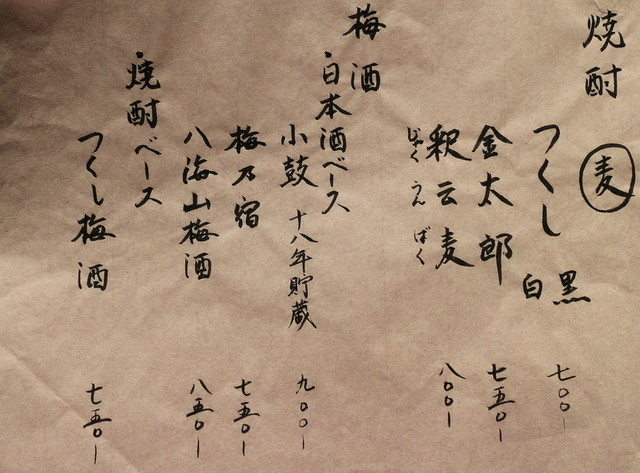 焼酎 麦
つくし 黒 白 七〇〇ー
金太郎 七五〇ー
釈云麦 八〇〇ー
じゃく うん ばく
梅酒
・日本酒ベース
小鼓 十八年貯蔵 九〇〇ー
梅乃宿 七五〇ー
八海山梅酒 八五〇ー
・焼酎ベース
つくし梅酒 七五〇ー